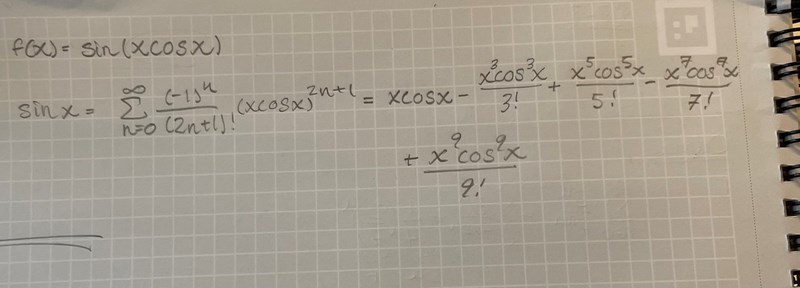 f(x) = sin(xcosx)
sin x = ∑_{n=0}^{∞} (-1)^n/(2n+1)! (xcosx)^{2n+1} = xcosx - x^3cos^3x/3! + x^5cos^5x/5! - x^7cos^7x/7!
+ x^9cos^9x/9!